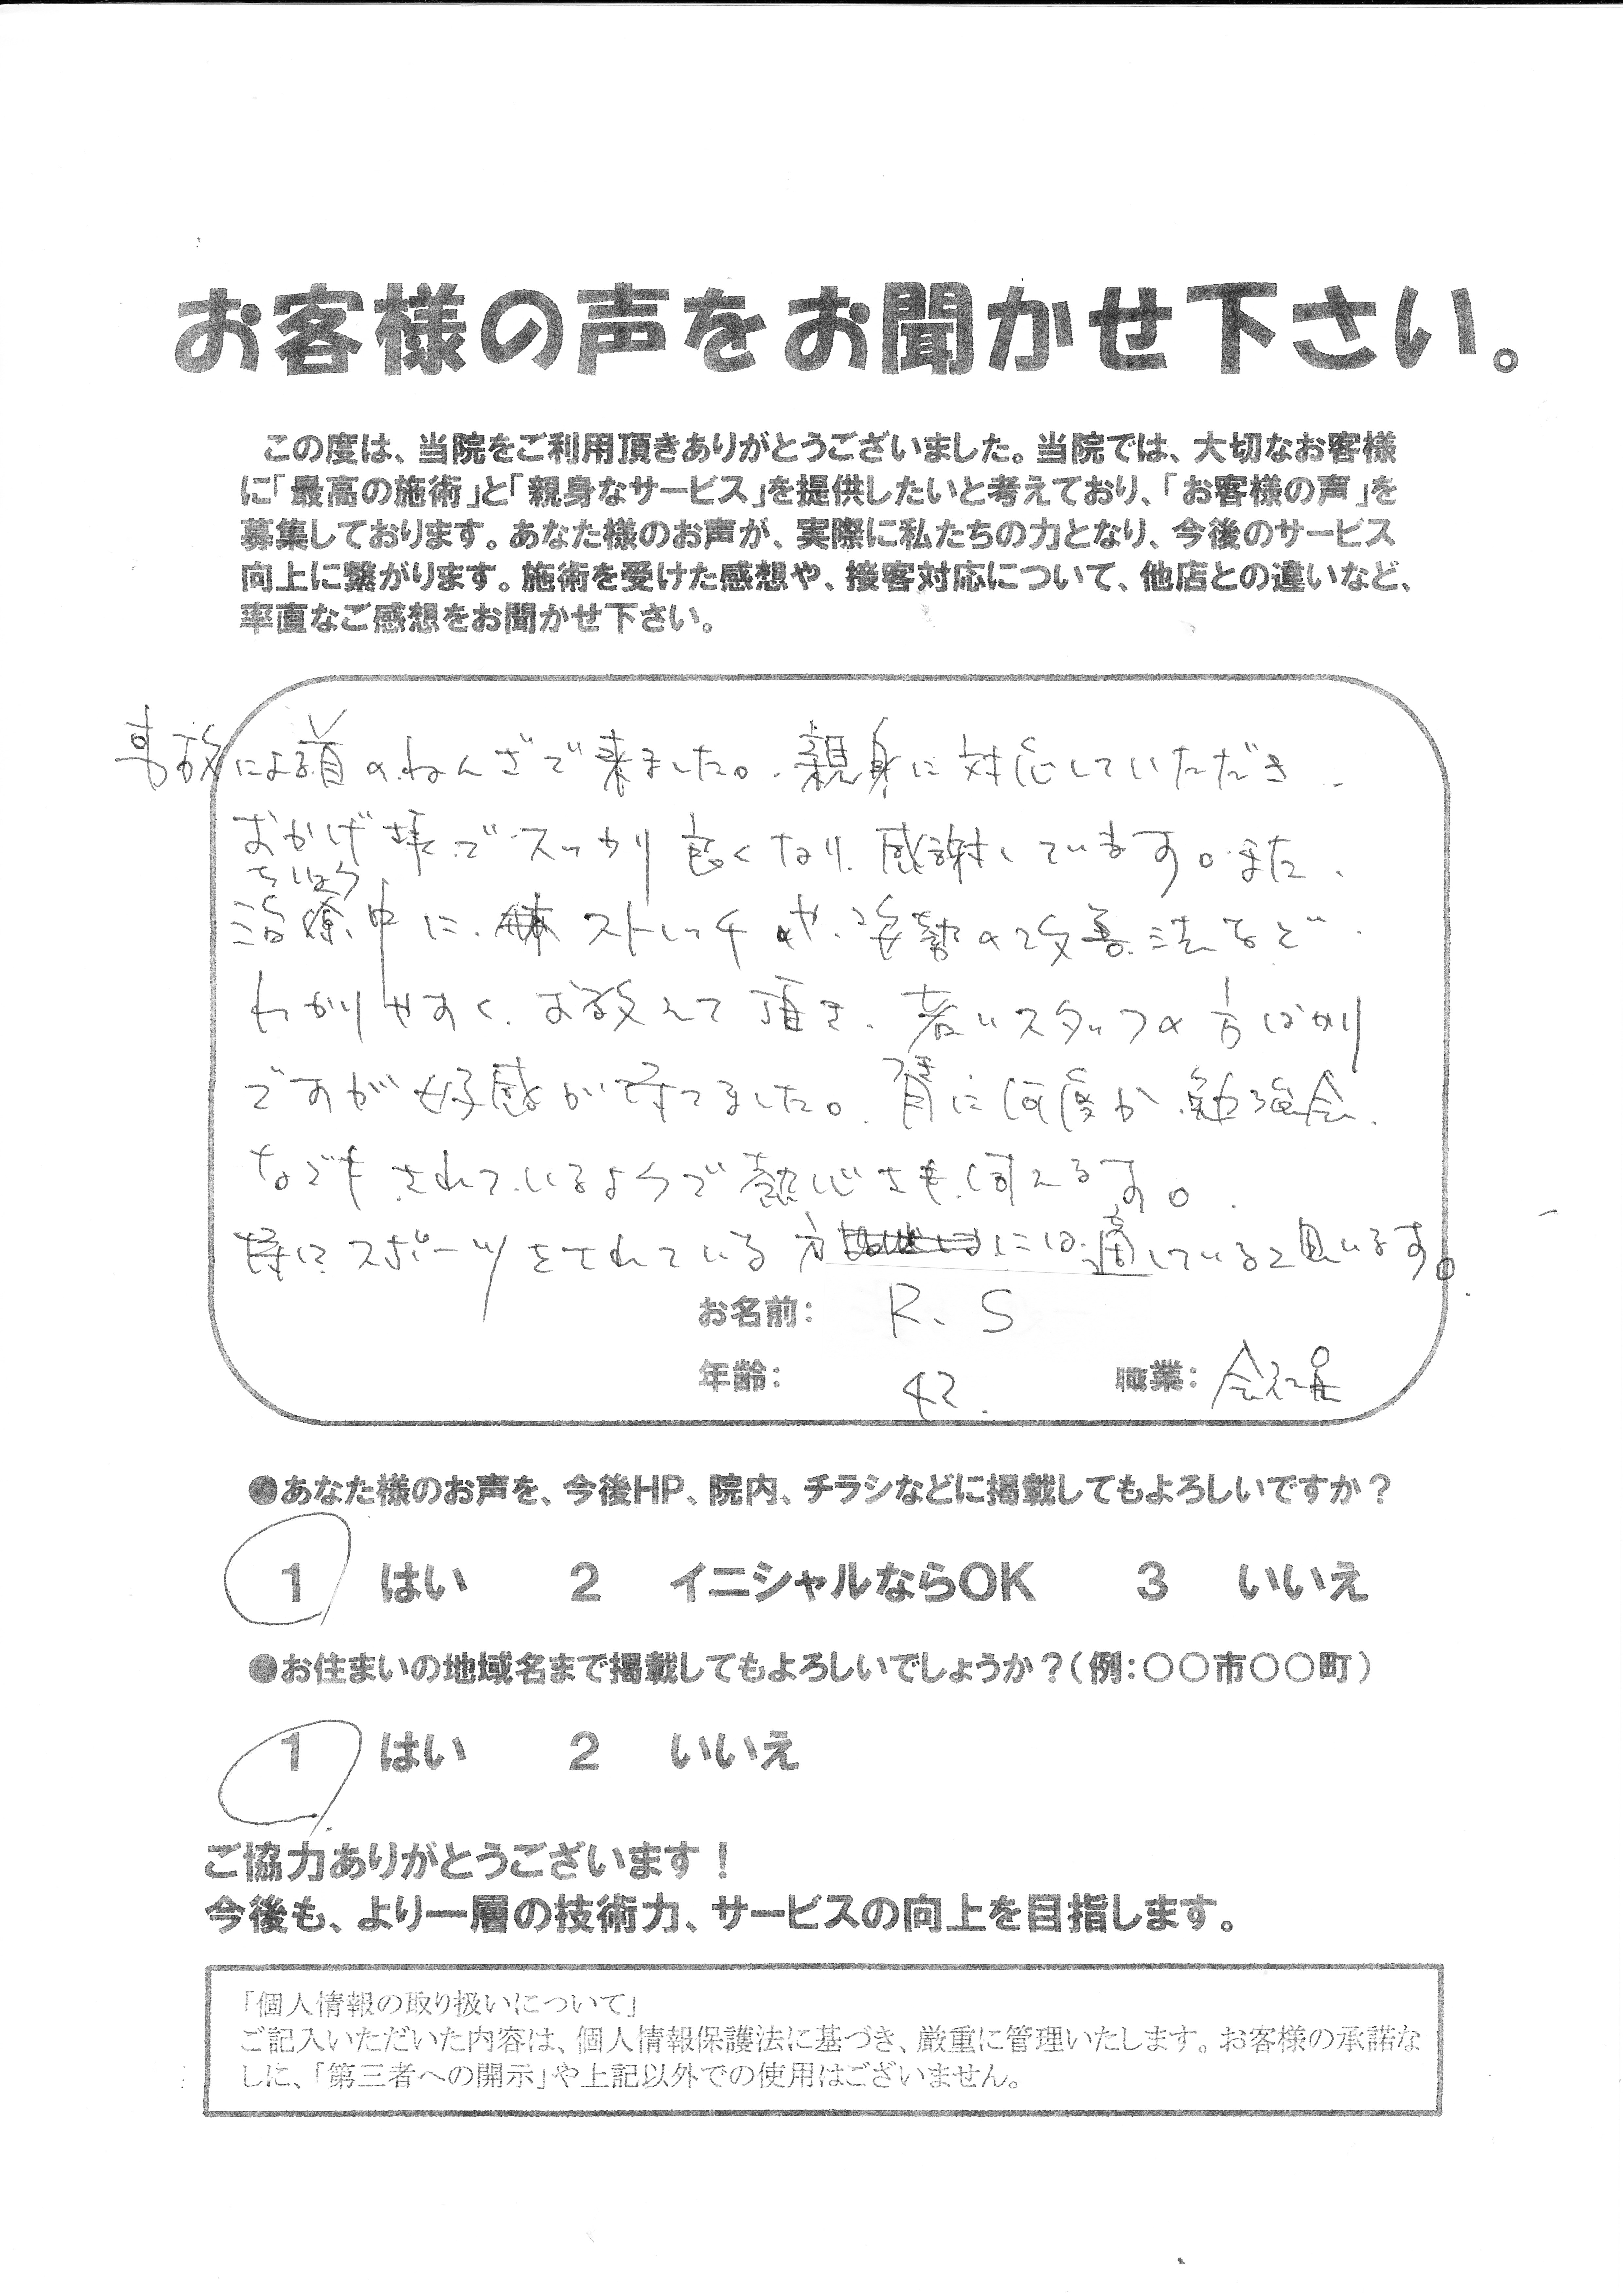 お客様の声をお聞かせ下さい。
この度は、当院をご利用頂きありがとうございました。当院では、大切なお客様
に「最高の施術」と「親身なサービス」を提供したいと考えており、「お客様の声」を
募集しております。あなた様のお声が、実際に私たちの力となり、今後のサービス
向上に繋がります。施術を受けた感想や、接客対応について、他店との違いなど、
率直なご感想をお聞かせ下さい。
事故による首のねんざで来ました。親身に対応していただき
おかげ様でスッカリ良くなり、感謝しています。また、
ちりょう
治療中に、ストレッチや、姿勢の改善法など
わかりやすく、お教えて頂き、若いスタッフの方ばかり
ですが好感が持てました。月に何度か勉強会
などもされているようで熱心さも伺えます。
特にスポーツをされている方には適していると思います。
お名前: R.S
年齢: 42. 職業: 会社員
●あなた様のお声を、今後HP、院内、チラシなどに掲載してもよろしいですか?
1 はい 2 イニシャルならOK 3 いいえ
●お住まいの地域名まで掲載してもよろしいでしょうか?(例:○○市○○町)
1 はい 2 いいえ
ご協力ありがとうございます!
今後も、より一層の技術力、サービスの向上を目指します。
「個人情報の取り扱いについて」
ご記入いただいた内容は、個人情報保護法に基づき、厳重に管理いたします。お客様の承諾な
しに、「第三者への開示」や上記以外での使用はございません。